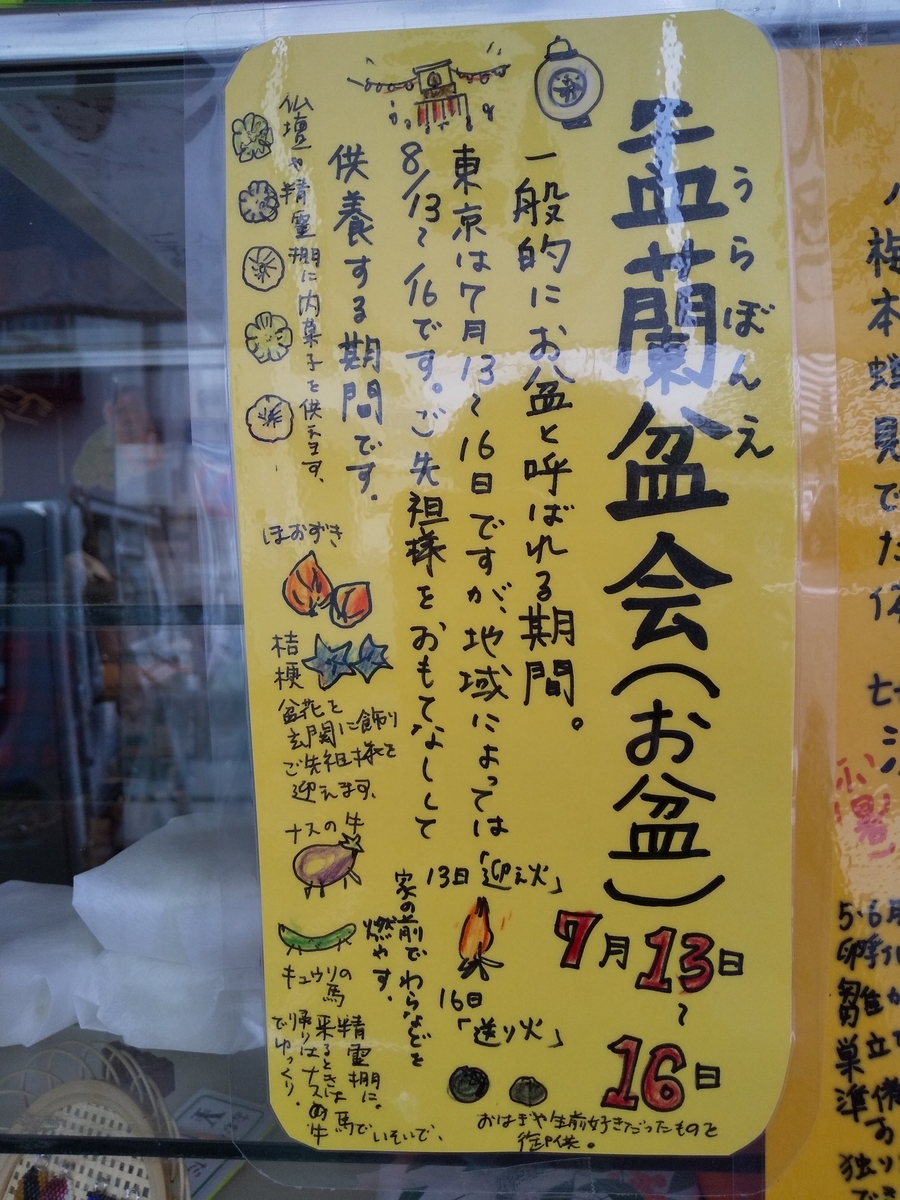 盂蘭盆会(お盆)
うらぼんえ
7月13日
〜
16日
一般的にお盆と呼ばれる期間。
東京は7月13〜16日ですが、地域によっては
8/13〜16です。ご先祖様をおもてなしして
供養する期間です。
仏壇や精霊棚に内菓子を供えます。
13日「迎え火」
16日
「送り火」
家の前でわらなどを
燃やす。
おはぎや生前好きだったものを
御供。
ほおずき
桔
梗
盆花を
玄関に飾り
ご先祖様を
迎えます。
ナスの牛
キュウリの
馬
精霊棚に。
来るときは馬でいそいで、
帰りはナスの牛
でゆっくり。
梅
本
蟷
見
で
た
七
小
暑
5.6月
卵孵化
雛が
巣立て
準備
お
独り